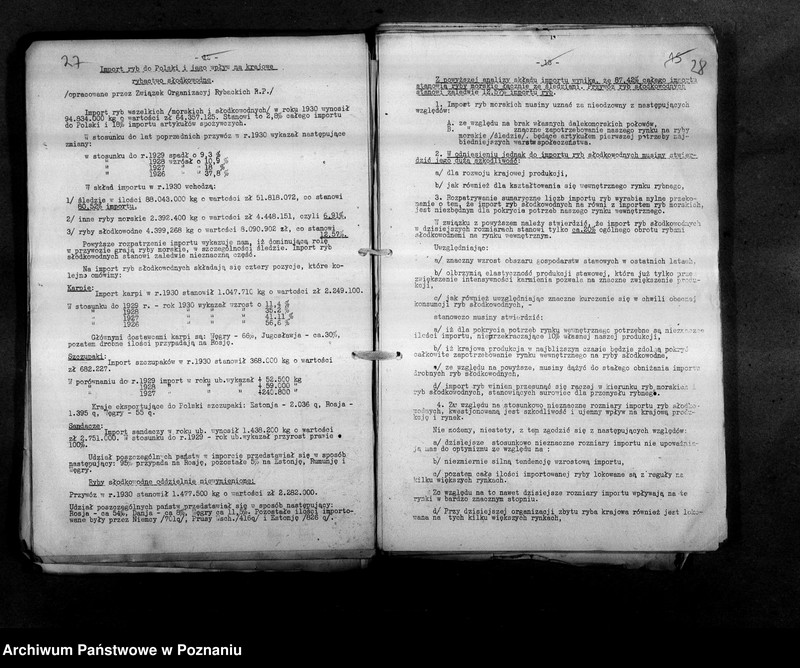 27
Import ryb do Polski i jego wpływ na krajowe
rybactwo słodkowodne.
/opracowane przez Związek Organizacyj Rybackich R.P./
Import ryb wszelkich /morskich i słodkowodnych/ w roku 1930 wynosił
94.834.000 kg o wartości zł 64.357.125. Stanowi to 2,8% całego importu
do Polski i 18% importu artykułów spożywczych.
W stosunku do lat poprzednich przywóz w r.1930 wykazał następujące
zmiany:
w stosunku do r.1929 spadł o 9,3 %
" 1928 wzrósł o 10,9 %
" 1927 " " 18 %
" 1926 " " 37,8 %
W skład importu w r.1930 wchodzą:
1/ śledzie w ilości 88.043.000 kg o wartości zł 51.818.072, co stanowi
80,52% importu.
2/ inne ryby morskie 2.392.400 kg o wartości zł 4.448.151, czyli 6,91%.
3/ ryby słodkowodne 4.399.268 kg o wartości 8.090.902 zł, co stanowi
12,57%.
Powyższe rozpatrzenie importu wykazuje nam, iż dominującą rolę
w przywozie grają ryby morskie, w szczególności śledzie. Import ryb
słodkowodnych stanowi zaledwie nieznaczną część.
Na import ryb słodkowodnych składają się cztery pozycje, które ko-
lejno omówimy:
Karpie:
Import karpi w r.1930 stanowił 1.047.710 kg o wartości zł 2.249.100.
W stosunku do 1929 r. - rok 1930 wykazał wzrost o 11,4 %
" 1928 " " " " 35,2 %
" 1927 " " " " 41,11 %
" 1926 " " " " 56,6 %
Głównymi dostawcami karpi są: Węgry - 66%, Jugosławja - ca.30%,
pozatem drobne ilości przypadają na Rosję.
Szczupaki:
Import szczupaków w r.1930 stanowił 368.000 kg o wartości
zł 682.227.
W porównaniu do r.1929 import w roku ub.wykazał + 52.500 kg
" 1928 " " " + 59.000 "
" 1927 " " " +240.800 "
Kraje eksportujące do Polski szczupaki: Estonja - 2.036 q, Rosja -
1.395 q, Węgry - 55 q.
Sandacze:
Import sandaczy w roku ub. wynosił 1.438.200 kg o wartości
zł 2.751.000. W stosunku do r.1929 - rok ub.wykazał przyrost prawie o
100%.
Udział poszczególnych państw w imporcie przedstawiał się w sposób
następujący: 95% przypada na Rosję, pozostałe 5% na Estonję, Rumunję i
Węgry.
Ryby słodkowodne oddzielnie niewymienione:
Przywóz w r.1930 stanowił 1.477.500 kg o wartości zł 2.282.000.
Udział poszczególnych państw przedstawiał się w sposób następujący:
Rosja - ca 54%, Danja - ca 8%, Węgry ca 11,5%. Pozostałe ilości importo-
wane były przez Niemcy /701q/, Prusy Wsch./416q/ i Estonję /826 q/.
28
Z powyższej analizy składu importu wynika, że 87,42% całego importu
stanowią ryby morskie łącznie ze śledziami. Przywóz ryb słodkowodnych
stanowi zaledwie 12,57% importu ryb.
1. Import ryb morskich musimy uznać za nieodzowny z następujących
względów:
A. ze względu na brak własnych dalekomorskich połowów,
B. " znaczne zapotrzebowanie naszego rynku na ryby
morskie /śledzie/, będące artykułem pierwszej potrzeby naj-
biedniejszych warstw społeczeństwa.
2. W odniesieniu jednak do importu ryb słodkowodnych musimy stwier-
dzić jego dużą szkodliwość:
a/ dla rozwoju krajowej produkcji,
b/ jak również dla kształtowania się wewnętrznego rynku rybnego,
3. Rozpatrywanie sumaryczne liczb importu ryb wyrabia mylne przeko-
nanie o tem, że import ryb słodkowodnych na równi z importem ryb morskich,
jest niezbędnym dla pokrycia potrzeb naszego rynku wewnętrznego.
W związku z powyższem należy stwierdzić, że import ryb słodkowodnych
w dzisiejszych rozmiarach stanowi tylko ca.20% ogólnego obrotu rybami
słodkowodnemi na rynku wewnętrznym.
Uwzględniając:
a/ znaczny wzrost obszaru gospodarstw stawowych w ostatnich latach,
b/ olbrzymią elastyczność produkcji stawowej, która już tylko przez
zwiększenie intensywności karmienia pozwala na znaczne zwiększenie produ-
kcji,
c/ jak również uwzględniając znaczne kurczenie się w chwili obecnej
konsumcji ryb słodkowodnych, -
stanowczo musimy stwierdzić:
a/ iż dla pokrycia potrzeb rynku wewnętrznego potrzebne są nieznaczne
ilości importu, nieprzekraczające 10% własnej naszej produkcji,
b/ iż krajowa produkcja w najbliższym czasie będzie zdolną pokryć
całkowite zapotrzebowanie rynku wewnętrznego na ryby słodkowodne,
c/ ze względu na powyższe, musimy dążyć do stałego obniżania importu
drobnych ryb słodkowodnych,
d/ import ryb winien przesunąć się raczej w kierunku ryb morskich i
ryb słodkowodnych, stanowiących surowiec dla przemysłu rybnego.
4. Ze względu na stosunkowo nieznaczne rozmiary importu ryb słodko-
wodnych, kwestjonowaną jest szkodliwość i ujemny wpływ na krajową produ-
kcję i rynek.
Nie możemy, niestety, z tem zgodzić się z następujących względów:
a/ dzisiejsze stosunkowo nieznaczne rozmiary importu nie upoważnia-
ją nas do optymizmu ze względu na :
b/ niezmiernie silną tendencję wzrostową importu,
c/ pozatem całe ilości importowanej ryby lokowane są z reguły na
kilku większych rynkach.
Ze względu na to nawet dzisiejsze rozmiary importu wpływają na te
rynki w bardzo znacznym stopniu.
d/ Przy dzisiejszej organizacji zbytu ryba krajowa również jest loko-
wana na tych kilku większych rynkach,
Archiwum Państwowe w Poznaniu